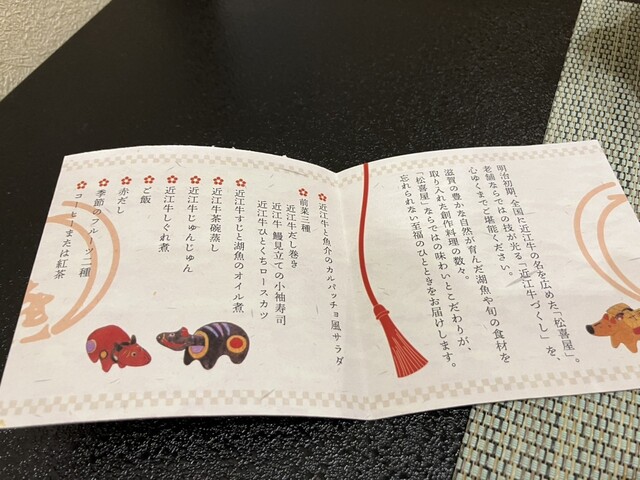 明治初期、全国に近江牛の名を広めた「松喜屋」。
老舗ならではの技が光る「近江牛づくし」を、
心ゆくまでご堪能ください。
滋賀の豊かな自然が育んだ湖魚や旬の食材を
取り入れた創作料理の数々。
「松喜屋」ならではの味わいとこだわりが、
忘れられない至福のひとときをお届けします。
近江牛と魚介のカルパッチョ風サラダ
前菜三種
近江牛だし巻き
近江牛 鰻見立ての小袖寿司
近江牛ひとくちロースカツ
近江牛すじと湖魚のオイル煮
近江牛茶碗蒸し
近江牛じゅんじゅん
近江牛しぐれ煮
ご飯
赤だし
季節のフルーツ二種
コーヒーまたは紅茶